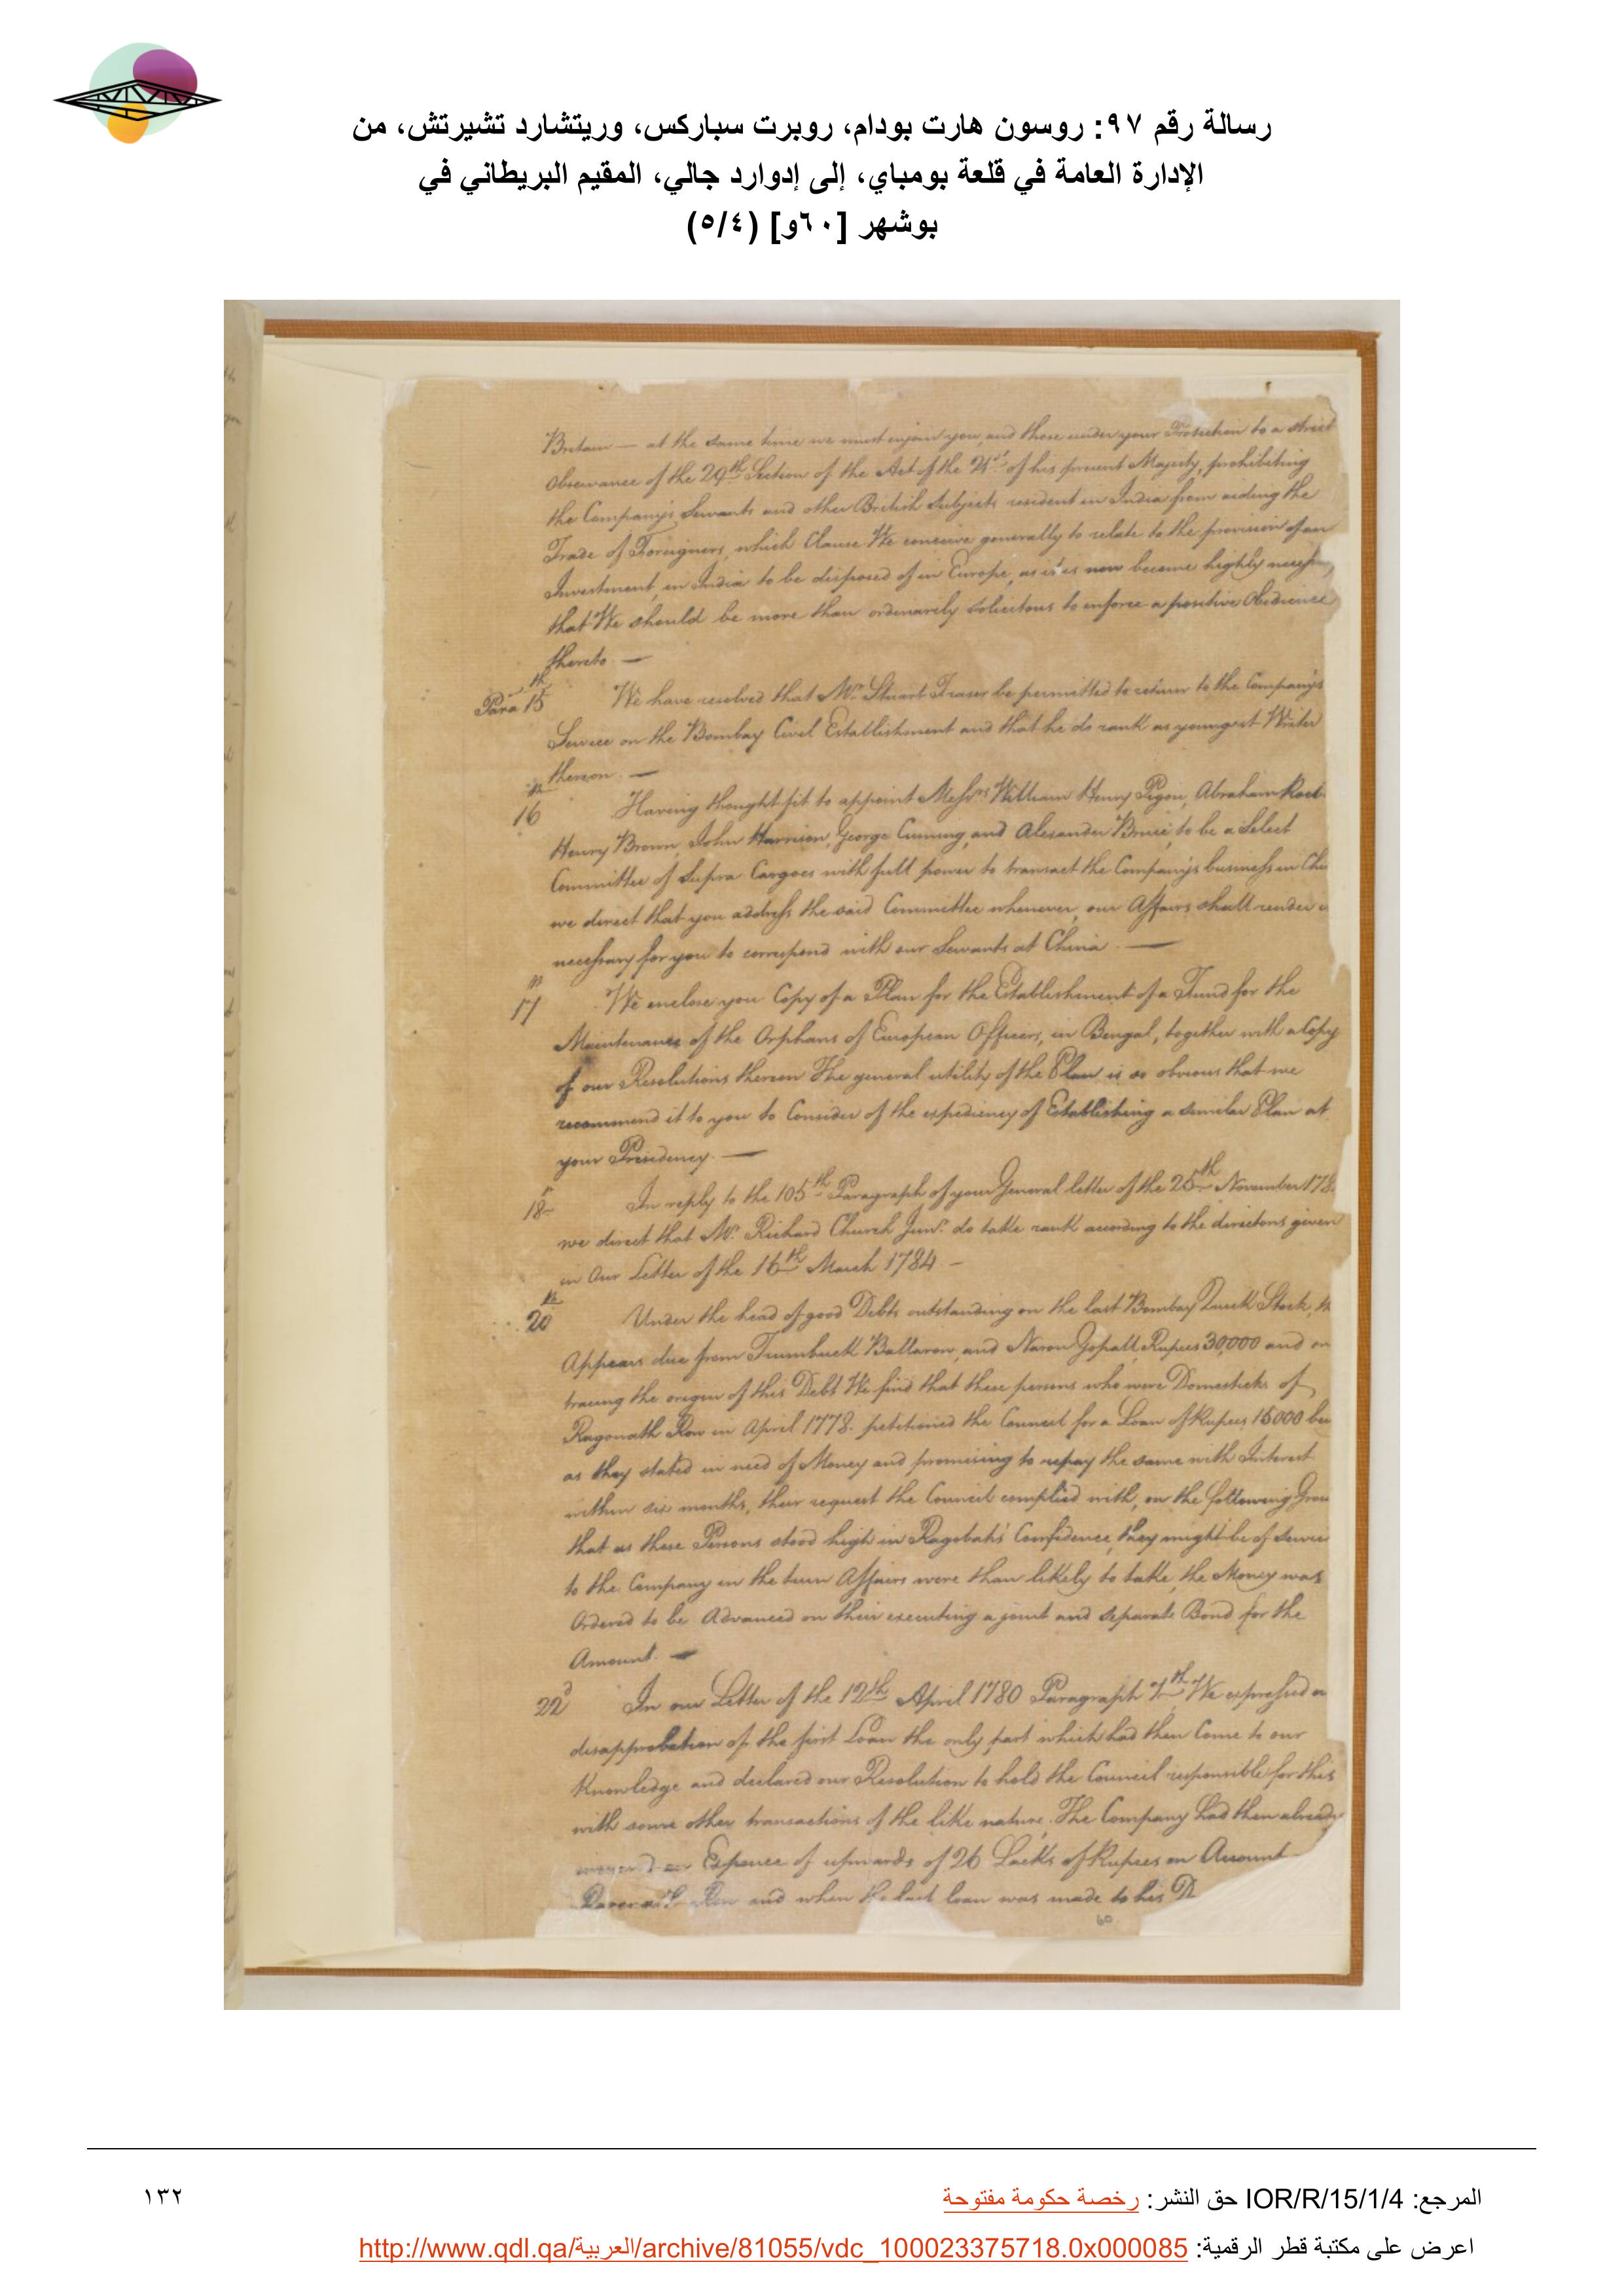 رسالة رقم ٩٧: روسون هارت بودام، روبرت سباركس، وريتشارد تشيرتش، من
الإدارة العامة في قلعة بومباي، إلى إدوارد جالي، المقيم البريطاني في
بوشهر [٦٠و] (٥/٤)
Britain — at the same time we must enjoin you and those under your Protection to a strict
Observance of the 29th Section of the Act of the 21st of his present Majesty, prohibiting
the Company's Servants and other British Subjects resident in India from aiding the
Trade of Foreigners, which Clause We conceive generally to relate to the provision of an
Investment, in India to be disposed of in Europe, as it is now become highly
that We should be more than ordinarily solicitous to enforce a positive Obedience
thereto. —
Para 15th We have resolved that Mr. Stuart Fraser be permitted to return to the Company's
Service on the Bombay Civil Establishment and that he do rank as youngest Writer
thereon. —
16th Having thought fit to appoint Messrs William Henry Pigou, Abraham
Henry Brown, John Harrison, George Cuming, and Alexander Bruce, to be a Select
Committee of Supra Cargoes with full power to transact the Company's business in
we direct that you address the said Committee whenever our Affairs shall render
necessary for you to correspond with our Servants at China. —
17th We enclose you Copy of a Plan for the Establishment of a Fund for the
Maintenance of the Orphans of European Officers, in Bengal, together with a Copy
of our Resolutions thereon The general utility of the Plan is so obvious that we
recommend it to you to Consider of the expediency of Establishing a similar Plan at
your Presidency. —
18th In reply to the 105th Paragraph of your General letter of the 25th November
we direct that Mr. Richard Church Junr. do take rank according to the directions given
in Our Letter of the 16th March 1784 —
20th Under the head of good Debts outstanding on the last Bombay Quick Stock,
Appears due from Trumbuck Ballarow, and Naron Gopall, Rupees 30,000 and on
tracing the origin of this Debt We find that these persons who were Domesticks of
Ragonath Row in April 1778. petitioned the Council for a Loan of Rupees 15000
as they stated in need of Money and promising to repay the same with Interest
within six months, their request the Council complied with, on the following
that as these Persons stood high in Ragobah's Confidence, they might be of
to the Company in the turn Affairs were than likely to take, the Money was
Ordered to be Advanced on their executing a joint and separate Bond for the
Amount. —
22d In our Letter of the 12th April 1780 Paragraph We expressed
disapprobation of the first Loan the only part which had then Come to our
Knowledge and declared our Resolution to hold the Council responsible for this
with some other transactions of the like nature. The Company had then already
Expence of upwards of 26 Lacks of Rupees on Account
Row and when the last loan was made to his
60
المرجع: IOR/R/15/1/4 حق النشر: رخصة حكومة مفتوحة
١٣٢
اعرض على مكتبة قطر الرقمية: http://www.qdl.qa/العربية/archive/81055/vdc_100023375718.0x000085